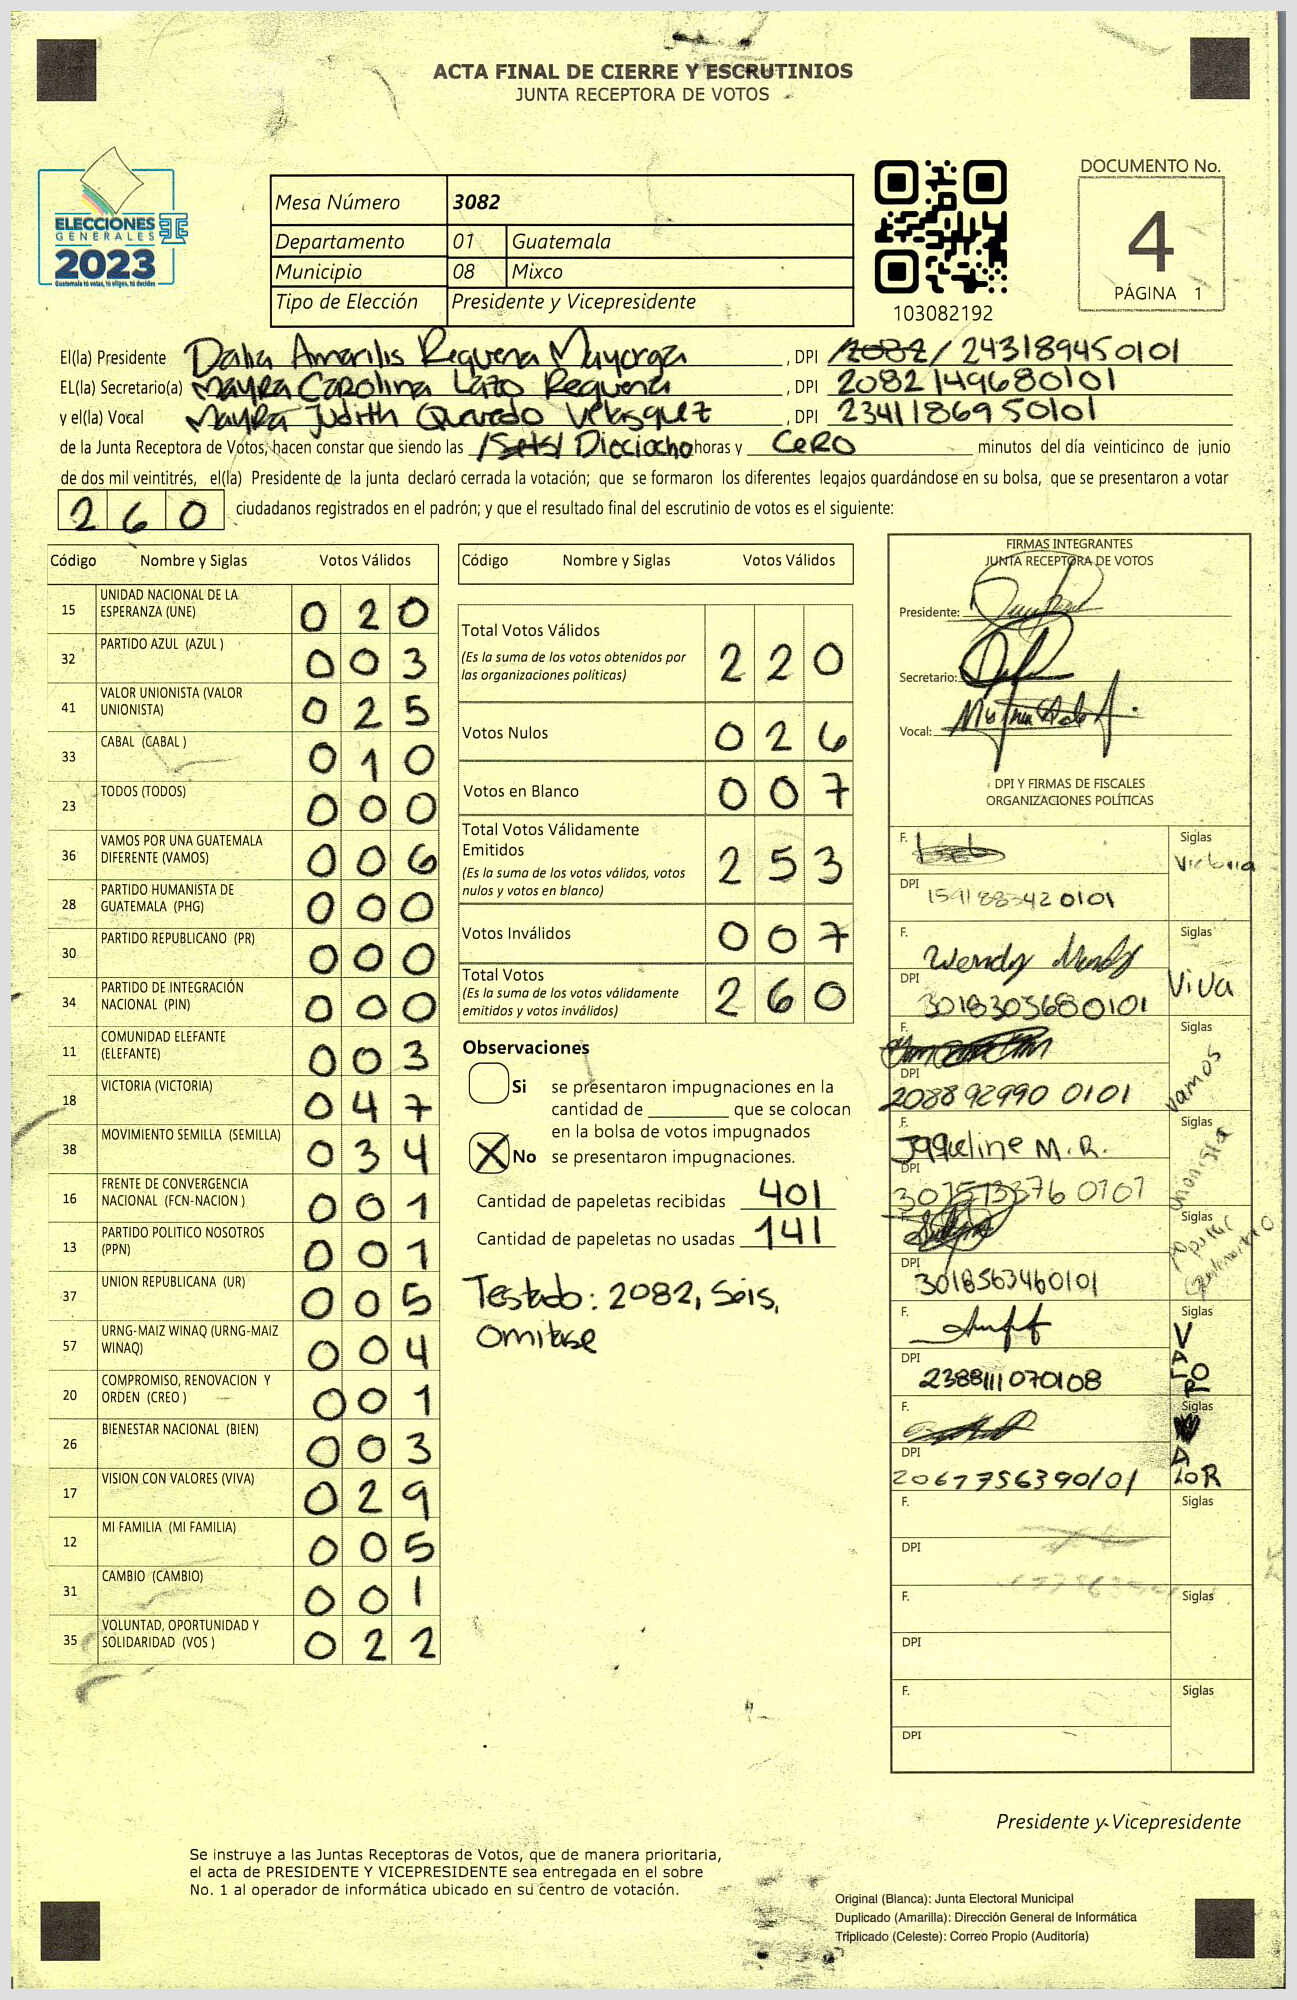 ACTA FINAL DE CIERRE Y ESCRUTINIOS
JUNTA RECEPTORA DE VOTOS
ELECCIONES
GENERALES
2023
Guatemala tú votas, tú eliges, tú decides
Mesa Número 3082
Departamento 01 Guatemala
Municipio 08 Mixco
Tipo de Elección Presidente y Vicepresidente
103082192
DOCUMENTO No.
4
PÁGINA 1
El(la) Presidente Dalia Amarilis Requena Mayorga, DPI /2082/ 243189450101
EL(la) Secretario(a) Mayra Carolina Lazo Requena, DPI 2082149680101
y el(la) Vocal Mayra Judith Quevedo Velasquez, DPI 2341186950101
de la Junta Receptora de Votos, hacen constar que siendo las /Seis/ Dieciocho horas y Cero minutos del día veinticinco de junio
de dos mil veintitrés, el(la) Presidente de la junta declaró cerrada la votación; que se formaron los diferentes legajos guardándose en su bolsa, que se presentaron a votar
260 ciudadanos registrados en el padrón; y que el resultado final del escrutinio de votos es el siguiente:
Código Nombre y Siglas Votos Válidos
15 UNIDAD NACIONAL DE LA ESPERANZA (UNE) 020
32 PARTIDO AZUL (AZUL ) 003
41 VALOR UNIONISTA (VALOR UNIONISTA) 025
33 CABAL (CABAL ) 010
23 TODOS (TODOS) 000
36 VAMOS POR UNA GUATEMALA DIFERENTE (VAMOS) 006
28 PARTIDO HUMANISTA DE GUATEMALA (PHG) 000
30 PARTIDO REPUBLICANO (PR) 000
34 PARTIDO DE INTEGRACIÓN NACIONAL (PIN) 000
11 COMUNIDAD ELEFANTE (ELEFANTE) 003
18 VICTORIA (VICTORIA) 047
38 MOVIMIENTO SEMILLA (SEMILLA) 034
16 FRENTE DE CONVERGENCIA NACIONAL (FCN-NACION ) 001
13 PARTIDO POLITICO NOSOTROS (PPN) 001
37 UNION REPUBLICANA (UR) 005
57 URNG-MAIZ WINAQ (URNG-MAIZ WINAQ) 004
20 COMPROMISO, RENOVACION Y ORDEN (CREO ) 001
26 BIENESTAR NACIONAL (BIEN) 003
17 VISION CON VALORES (VIVA) 029
12 MI FAMILIA (MI FAMILIA) 005
31 CAMBIO (CAMBIO) 001
35 VOLUNTAD, OPORTUNIDAD Y SOLIDARIDAD (VOS ) 022
Código Nombre y Siglas Votos Válidos
Total Votos Válidos 220
(Es la suma de los votos obtenidos por
las organizaciones políticas)
Votos Nulos 026
Votos en Blanco 007
Total Votos Válidamente
Emitidos 253
(Es la suma de los votos válidos, votos
nulos y votos en blanco)
Votos Inválidos 007
Total Votos 260
(Es la suma de los votos válidamente
emitidos y votos inválidos)
Observaciones
Si se presentaron impugnaciones en la
cantidad de ________ que se colocan
en la bolsa de votos impugnados
X No se presentaron impugnaciones.
Cantidad de papeletas recibidas 401
Cantidad de papeletas no usadas 141
Testado: 2082, Seis,
Omitase
FIRMAS INTEGRANTES
JUNTA RECEPTORA DE VOTOS
Presidente:
Secretario:
Vocal:
DPI Y FIRMAS DE FISCALES
ORGANIZACIONES POLÍTICAS
F. Siglas Victoria
DPI 1591883420101
F. Wendy Siglas Viva
DPI 3018303680101
F. Siglas vamos
DPI 2088929900101
F. Jaqueline M.R. Siglas unionista
DPI 3075133760101
F. Siglas
DPI 3018563460101
F. Siglas VALOR
DPI 2388111070108
F. Siglas VALOR
DPI 2067756390101
F. Siglas
DPI
F. Siglas
DPI
F. Siglas
DPI
Presidente y Vicepresidente
Se instruye a las Juntas Receptoras de Votos, que de manera prioritaria,
el acta de PRESIDENTE Y VICEPRESIDENTE sea entregada en el sobre
No. 1 al operador de informática ubicado en su centro de votación.
Original (Blanca): Junta Electoral Municipal
Duplicado (Amarilla): Dirección General de Informática
Triplicado (Celeste): Correo Propio (Auditoría)